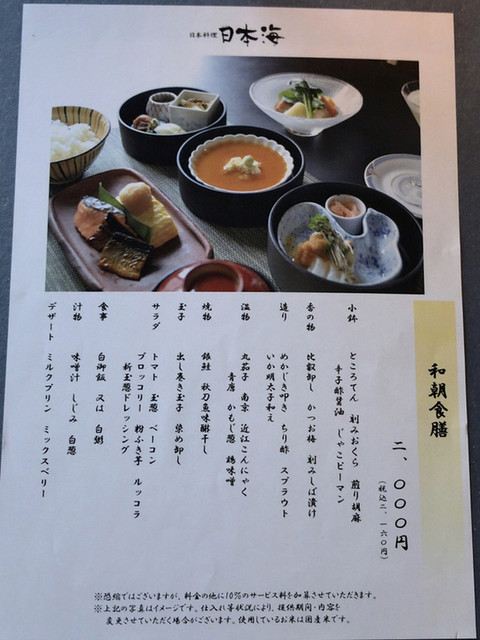 日本料理 日本海
和朝食膳
二、〇〇〇円
(税込二、一六〇円)
小鉢 ところてん 刻みおくら 煎り胡麻
辛子酢醤油 じゃこピーマン
香の物 比叡卸し かつお梅 刻みしば漬け
造り めかじき叩き ちり酢 スプラウト
いか明太子和え
温物 丸茄子 南京 近江こんにゃく
青唐 かもじ葱 鶏味噌
焼物 銀鮭 秋刀魚味醂干し
玉子 出し巻き玉子 染め卸し
サラダ トマト 玉葱 ベーコン
ブロッコリー 粉ふき芋 ルッコラ
新玉葱ドレッシング
食事 白御飯 又は 白粥
汁物 味噌汁 しじみ 白葱
デザート ミルクプリン ミックスベリー
※恐縮ではございますが、料金の他に10%のサービス料を加算させていただきます。
※上記の写真はイメージです。仕入れ等状況により、提供期間・内容を
変更させていただく場合がございます。使用しているお米は国産米です。